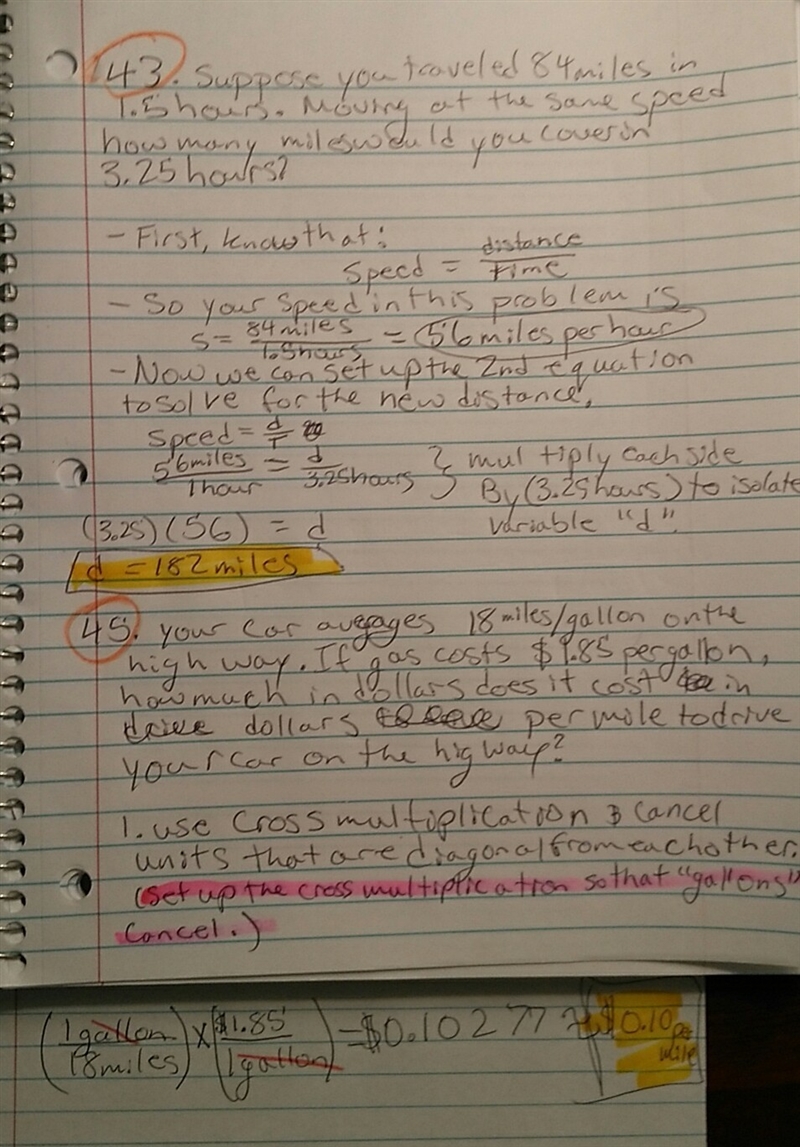 43. Suppose you traveled 84 miles in
1.5 hours. Moving at the same speed
how many miles would you cover in
3.25 hours?
- First, know that:
speed = distance / time
- So your speed in this problem is
s = 84 miles / 1.5 hours = 56 miles per hour
- Now we can set up the 2nd equation
to solve for the new distance,
speed = d / T
56 miles / 1 hour = d / 3.25 hours } multiply each side
By (3.25 hours) to isolate
variable "d".
(3.25)(56) = d
d = 182 miles
45. Your car averages 18 miles/gallon on the
highway. If gas costs $1.85 per gallon,
how much in dollars does it cost in
drive dollars per mile to drive
your car on the higway?
1. use cross multiplication & cancel
units that are diagonal from each other.
(set up the cross multiplication so that "gallons"
cancel.)
(1 gallon / 18 miles) x ($1.85 / 1 gallon) = $0.102777 ≈ $0.10 per
mile